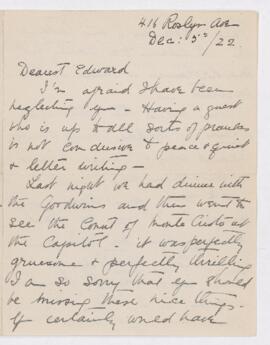 416 Roslyn Ave
Dec: 5th/22.
Dearest Edward
I'm afraid I have been
neglecting you - Having a guest
who is up to all sorts of pranks
is not conducive to peace & quiet
& letter writing -
Last night we had dinner with
the Goodwins and then went to
see the Count of Monte Cristo at
the Capitol. - it was perfectly
gruesome & perfectly thrilling
I am so sorry that you should
be missing these nice things.
You certainly would have